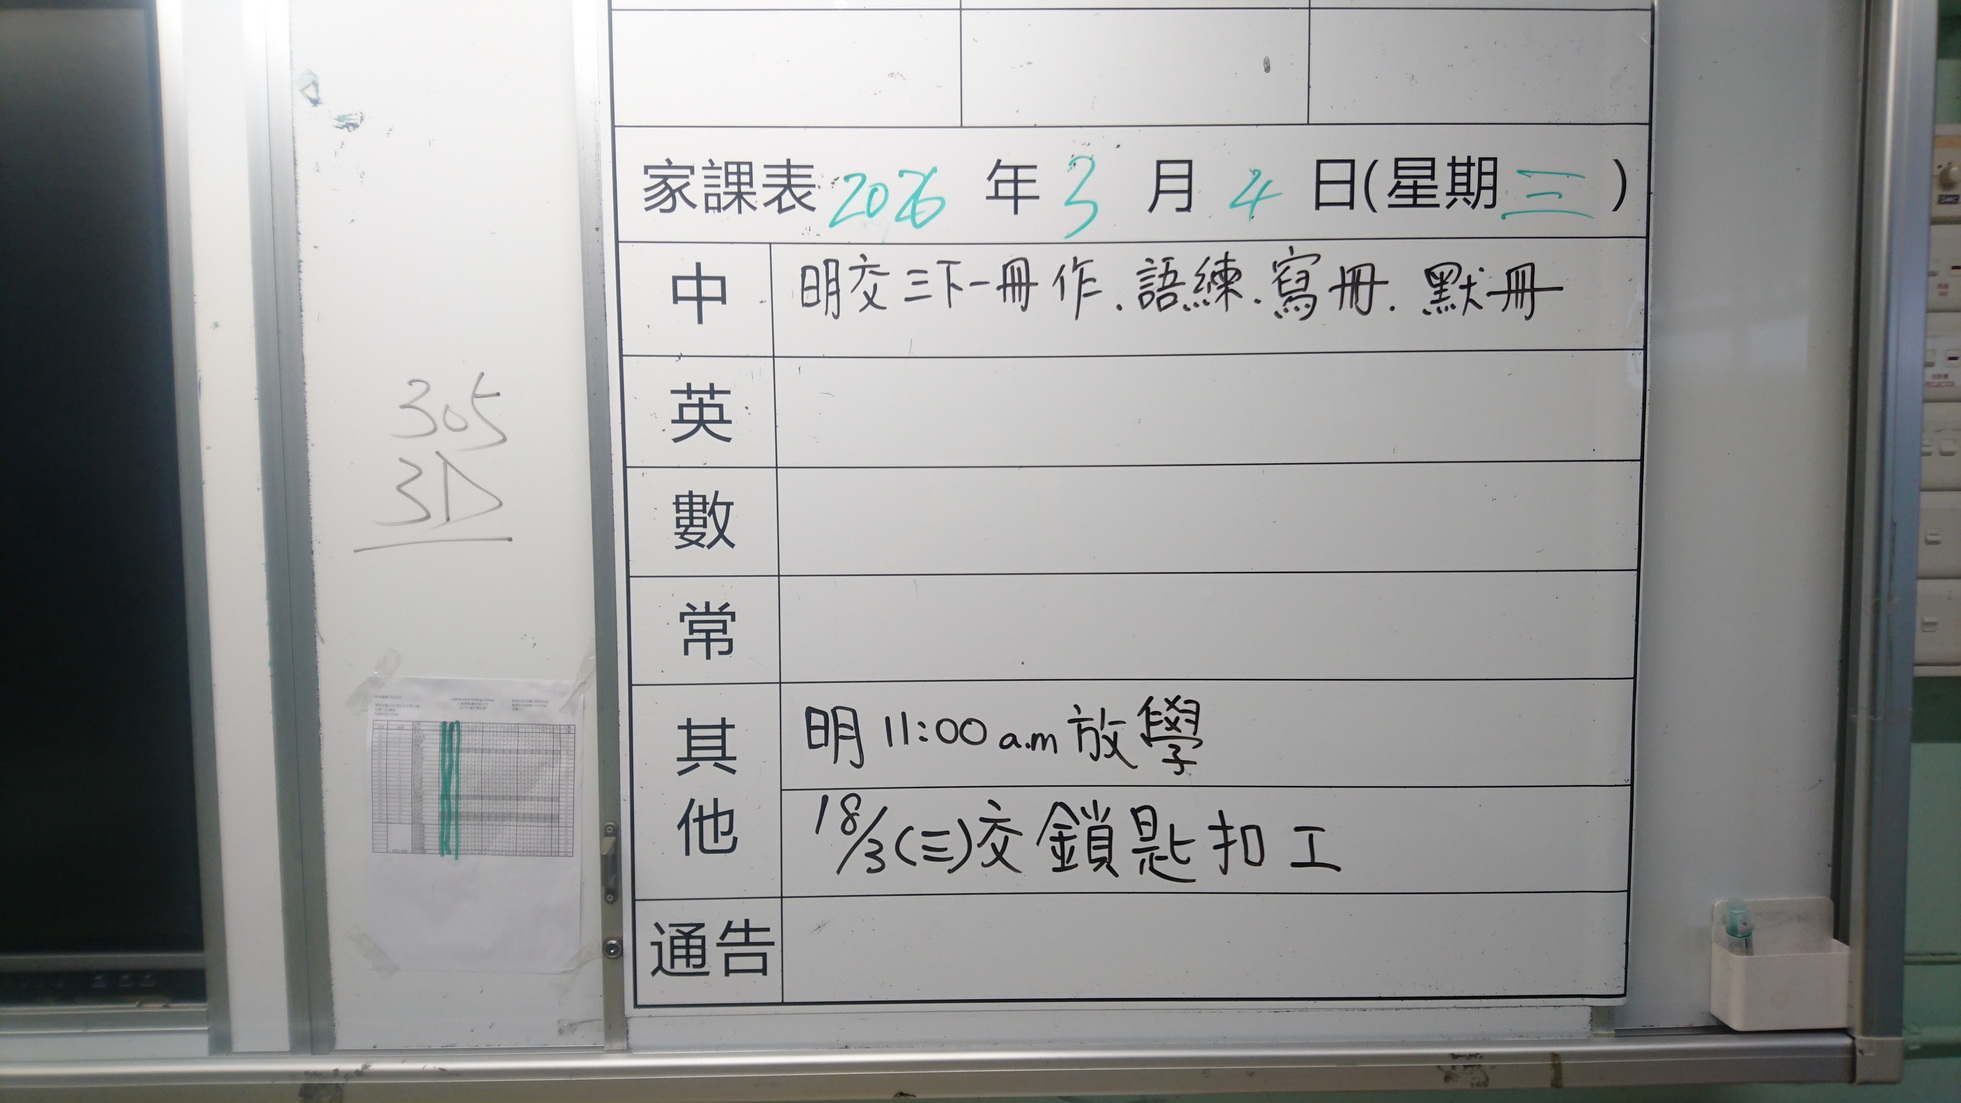 家課表 2026 年 3 月 4 日(星期 三 )
中 明交三下一冊作.語練.寫冊.默冊
英
數
常
其他 明11:00a.m放學
18/3(三)交鎖匙扣工
通告
305
3D